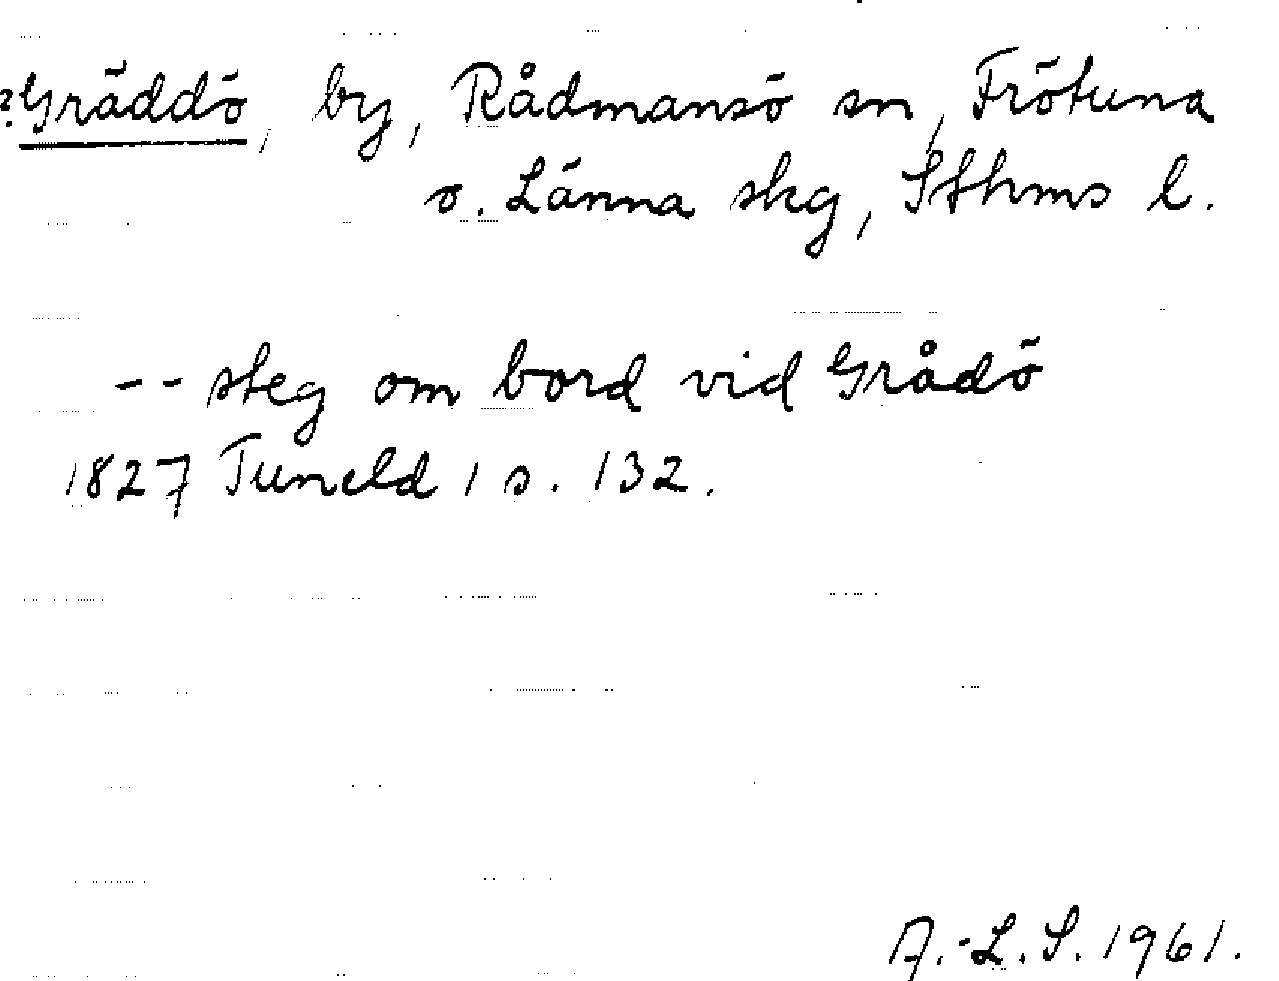 ?Gräddö, by, Rådmansö sn, Frötuna
o. Länna skg, Sthms l.
-- steg om bord vid Grådö
1827 Tuneld 1 s. 132.
A.-L. S. 1961.